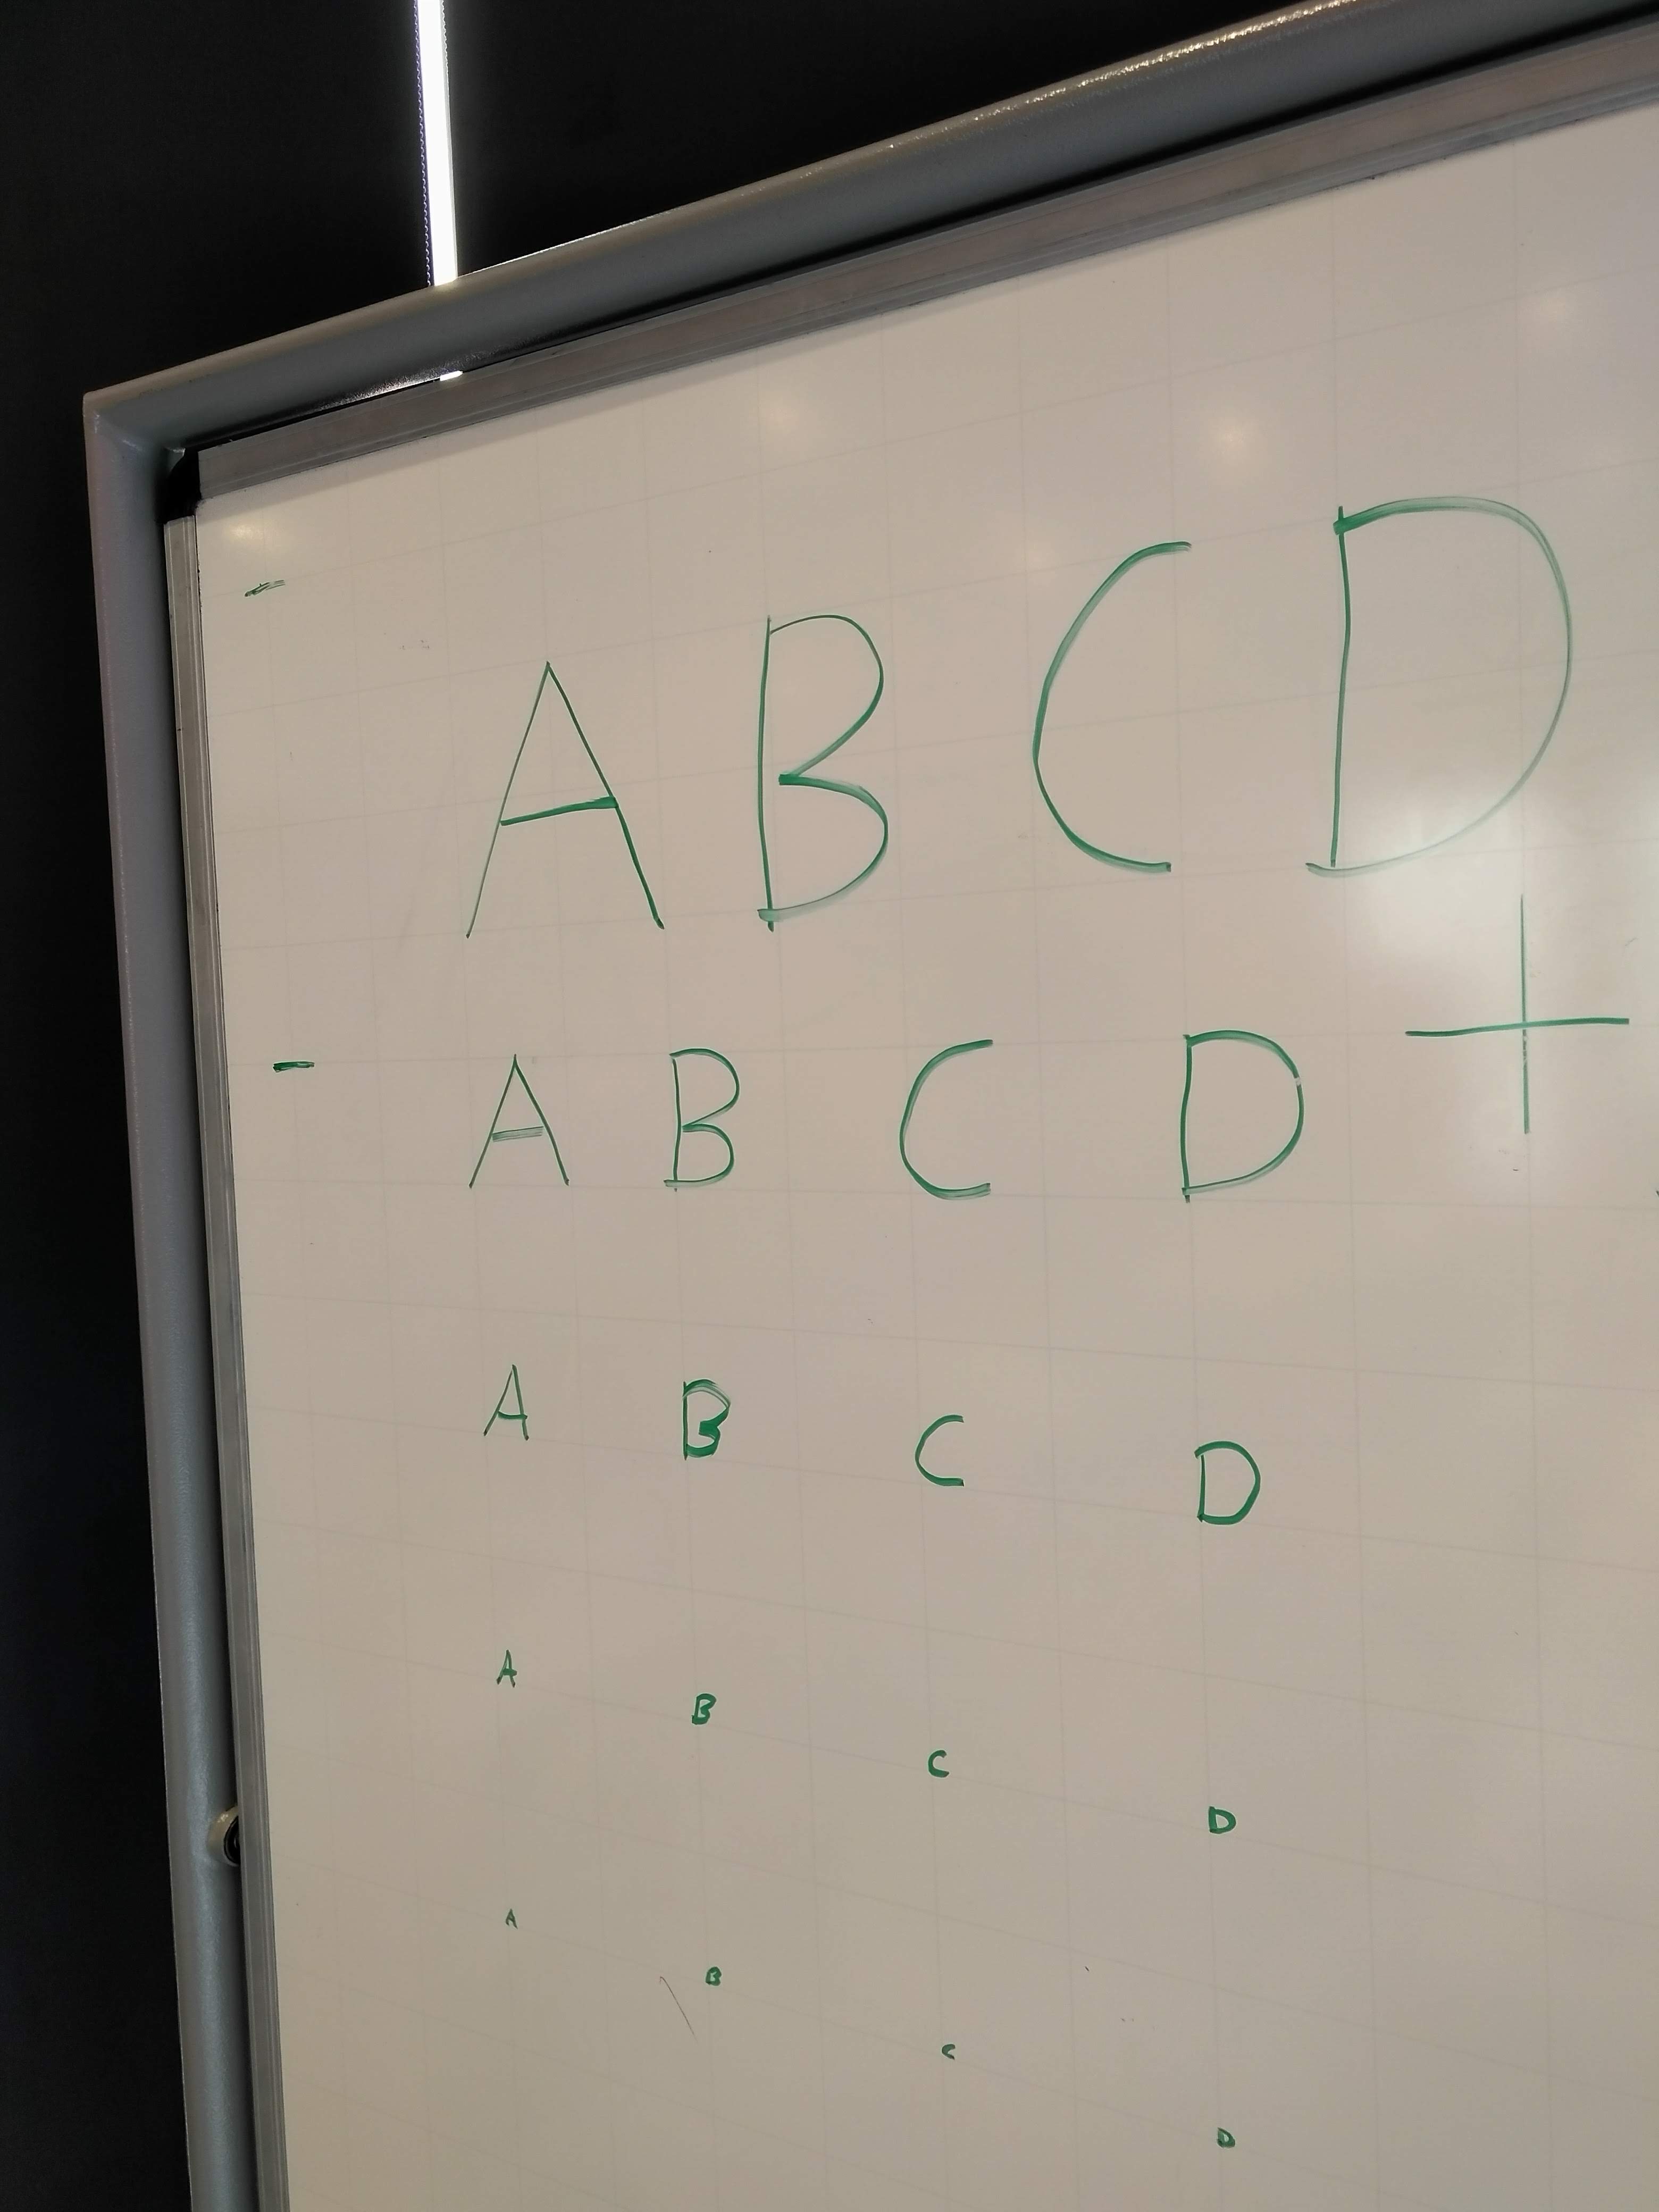 - A B C D
- A B C D +
A B C D
A B C D
A B C D